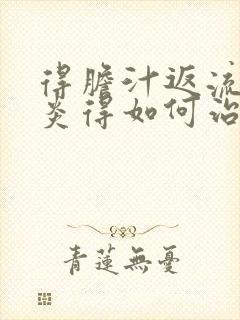 得膽汁返流
炎得如何治
青蓮無憂